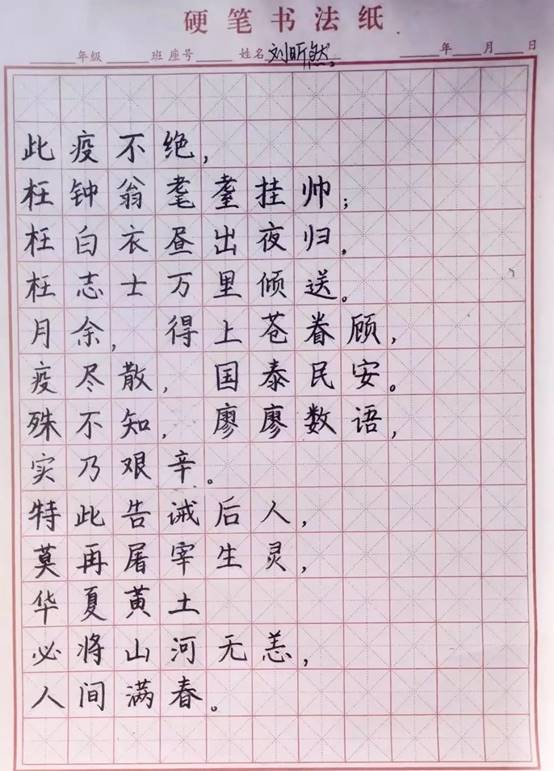 硬笔书法纸
年级 班 座号 姓名 刘昕然。 年 月 日
此疫不绝，
枉钟翁耄耋挂帅；
枉白衣昼出夜归，
枉志士万里倾送。
月余，得上苍眷顾，
疫尽散，国泰民安。
殊不知，廖廖数语，
实乃艰辛。
特此告诫后人，
莫再屠宰生灵，
华夏黄土
必将山河无恙，
人间满春。